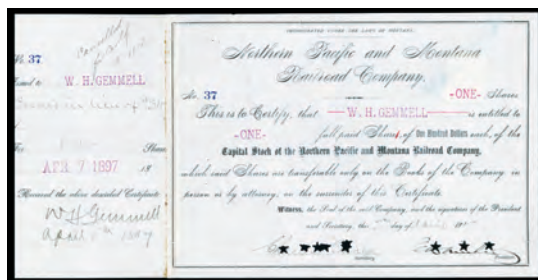 Cancelled
No. 37
Issued to W. H. GEMMELL
For Shares
APR 7 1897 18
Received the above described Certificate
W H Gemmell
April 1897
INCORPORATED UNDER THE LAWS OF MONTANA.
Northern Pacific and Montana
Railroad Company.
No. 37 -ONE- Shares
This is to Certify, that W. H. GEMMELL is entitled to
-ONE- full paid Share, of One Hundred Dollars each, of the
Capital Stock of the Northern Pacific and Montana Railroad Company,
which said Shares are transferable only on the Books of the Company in
person or by attorney, on the surrender of this Certificate.
Witness, the Seal of the said Company, and the signatures of the President
and Secretary, the day of